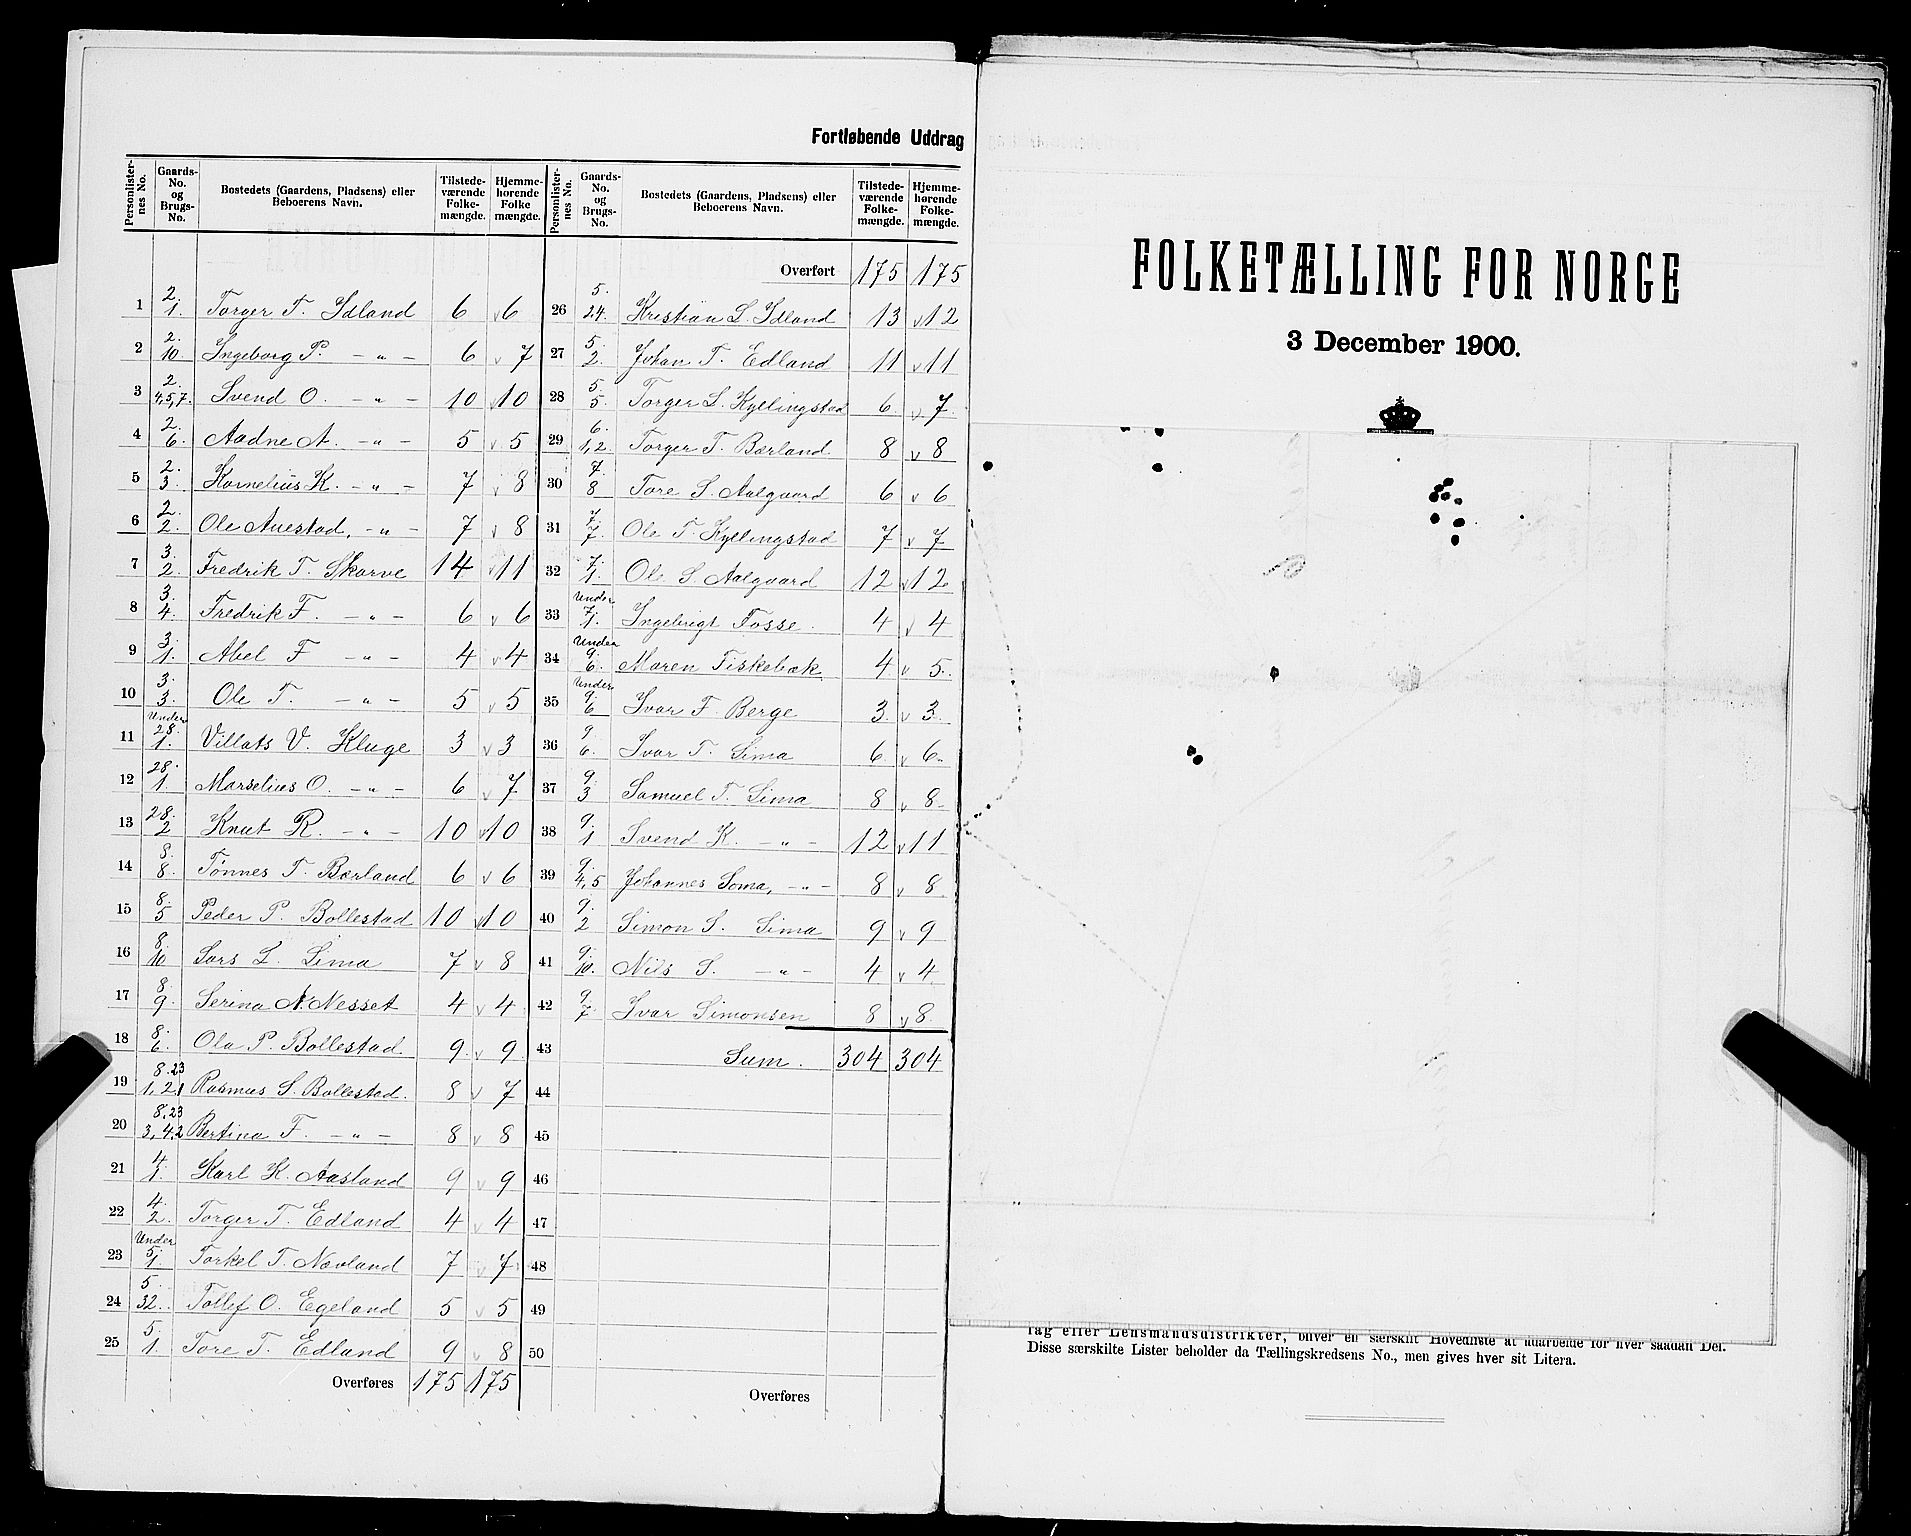 Fortløbende Uddrag
Personlisternes No. | Gaards-No. og Brugs-No. | Bostedets (Gaardens, Pladsens) eller Beboerens Navn. | Tilstedeværende Folkemængde. | Hjemmehørende Folkemængde.
1 | 2. 1. | Torger T. Idland | 6 | v6
2 | 2. 10. | Ingeborg P. — „ — | 6 | v 7
3 | 2. 4,5,7. | Svend O. — „ — | 10 | v10
4 | 2. 6. | Aadne A. — „ — | 5 | v 5
5 | 2. 3. | Kornelius K. — „ — | 7 | v 8
6 | 2. 2. | Ole Auestad, — „ — | 7 | v 8
7 | 3. 2. | Fredrik T. Skarve | 14 | v11
8 | 3. 4. | Fredrik F. — „ — | 6 | v 6
9 | 3. 1. | Abel F — „ — | 4 | v4
10 | 3. 3. | Ole T. — „ — | 5 | v 5
11 | Under 28. 1. | Villats V. Kluge | 3 | v 3
12 | 28. 1 | Marselius O. — „ — | 6 | v 7
13 | 28. 2 | Knut R. — „ — | 10 | v10
14 | 8. 8. | Tønnes T. Bærland | 6 | v 6
15 | 8. 5 | Peder P. Bollestad | 10 | v10
16 | 8. 10 | Lars L. Sima | 7 | v 8
17 | 8. 9. | Serina N. Nesset | 4 | v 4
18 | 8. 6. | Ola P. Bollestad. | 9. | v 9.
19 | 8. 23 1, 2. 1 | Rasmus S. Bollestad. | 8 | v 7
20 | 8. 23 3, 4. 2 | Bertina F. — „ — | 8 | v 8
21 | 4. 1. | Karl K. Aasland | 9 | v 9
22 | 4. 2. | Torger T. Edland | 4 | v 4
23 | Under 5. 1. | Torkel T. Nævland | 7 | v 7
24 | 5. 32. | Tollef O. Egeland | 5 | v 5
25 | 5. 1. | Tore T. Edland | 9 | v 8
Overføres | 175 | 175
Personlisternes No. | Gaards-No. og Brugs-No. | Bostedets (Gaardens, Pladsens) eller Beboerens Navn. | Tilstedeværende Folkemængde. | Hjemmehørende Folkemængde.
Overført | 175 | 175
26 | 5. 24. | Kristian S. Idland | 13 | v12
27 | 5. 2. | Johan T. Edland | 11 | v11
28 | 5. 5. | Torger S. Kyllingstad | 6. | v 7.
29 | 6. 1,2. | Torger T. Bærland. | 8 | v 8
30 | 7. 8 | Tore S. Aalgaard | 6 | v 6
31 | 7. 7. | Ole T. Kyllingstad | 7 | v 7
32 | 7. 1. | Ole S. Aalgaard | 12 | v12
33 | Under 7. 1. | Ingebrigt Fosse. | 4 | v 4
34 | Under 9. 6. | Maren Fiskebæk | 4 | v 5.
35 | Under 9. 6 | Ivar F. Berge | 3. | v 3.
36 | 9 6. | Ivar T. Sima | 6. | v 6.
37 | 9. 3 | Samuel T. Sima | 8 | v 8
38 | 9. 1 | Svend K. — „ — | 12 | v11
39 | 9. 4,5 | Johannes Soma, — „ — | 8 | v 8
40 | 9. 2 | Simon S. Sima | 9 | v 9
41 | 9. 10. | Nils S. — „ — | 4 | v 4
42 | 9 7. | Ivar Simonsen | 8 | v 8.
43 | Sum. | 304 | 304
44
45
46
47
48
49
50
Overføres
FOLKETÆLLING FOR NORGE
3 December 1900.
lag eller Lensmandsdistrikter, bliver en særskilt Hovedliste at udarbeide for hver saadan Del.
Disse særskilte Lister beholder da Tællingskredsens No., men gives hver sit Litera.